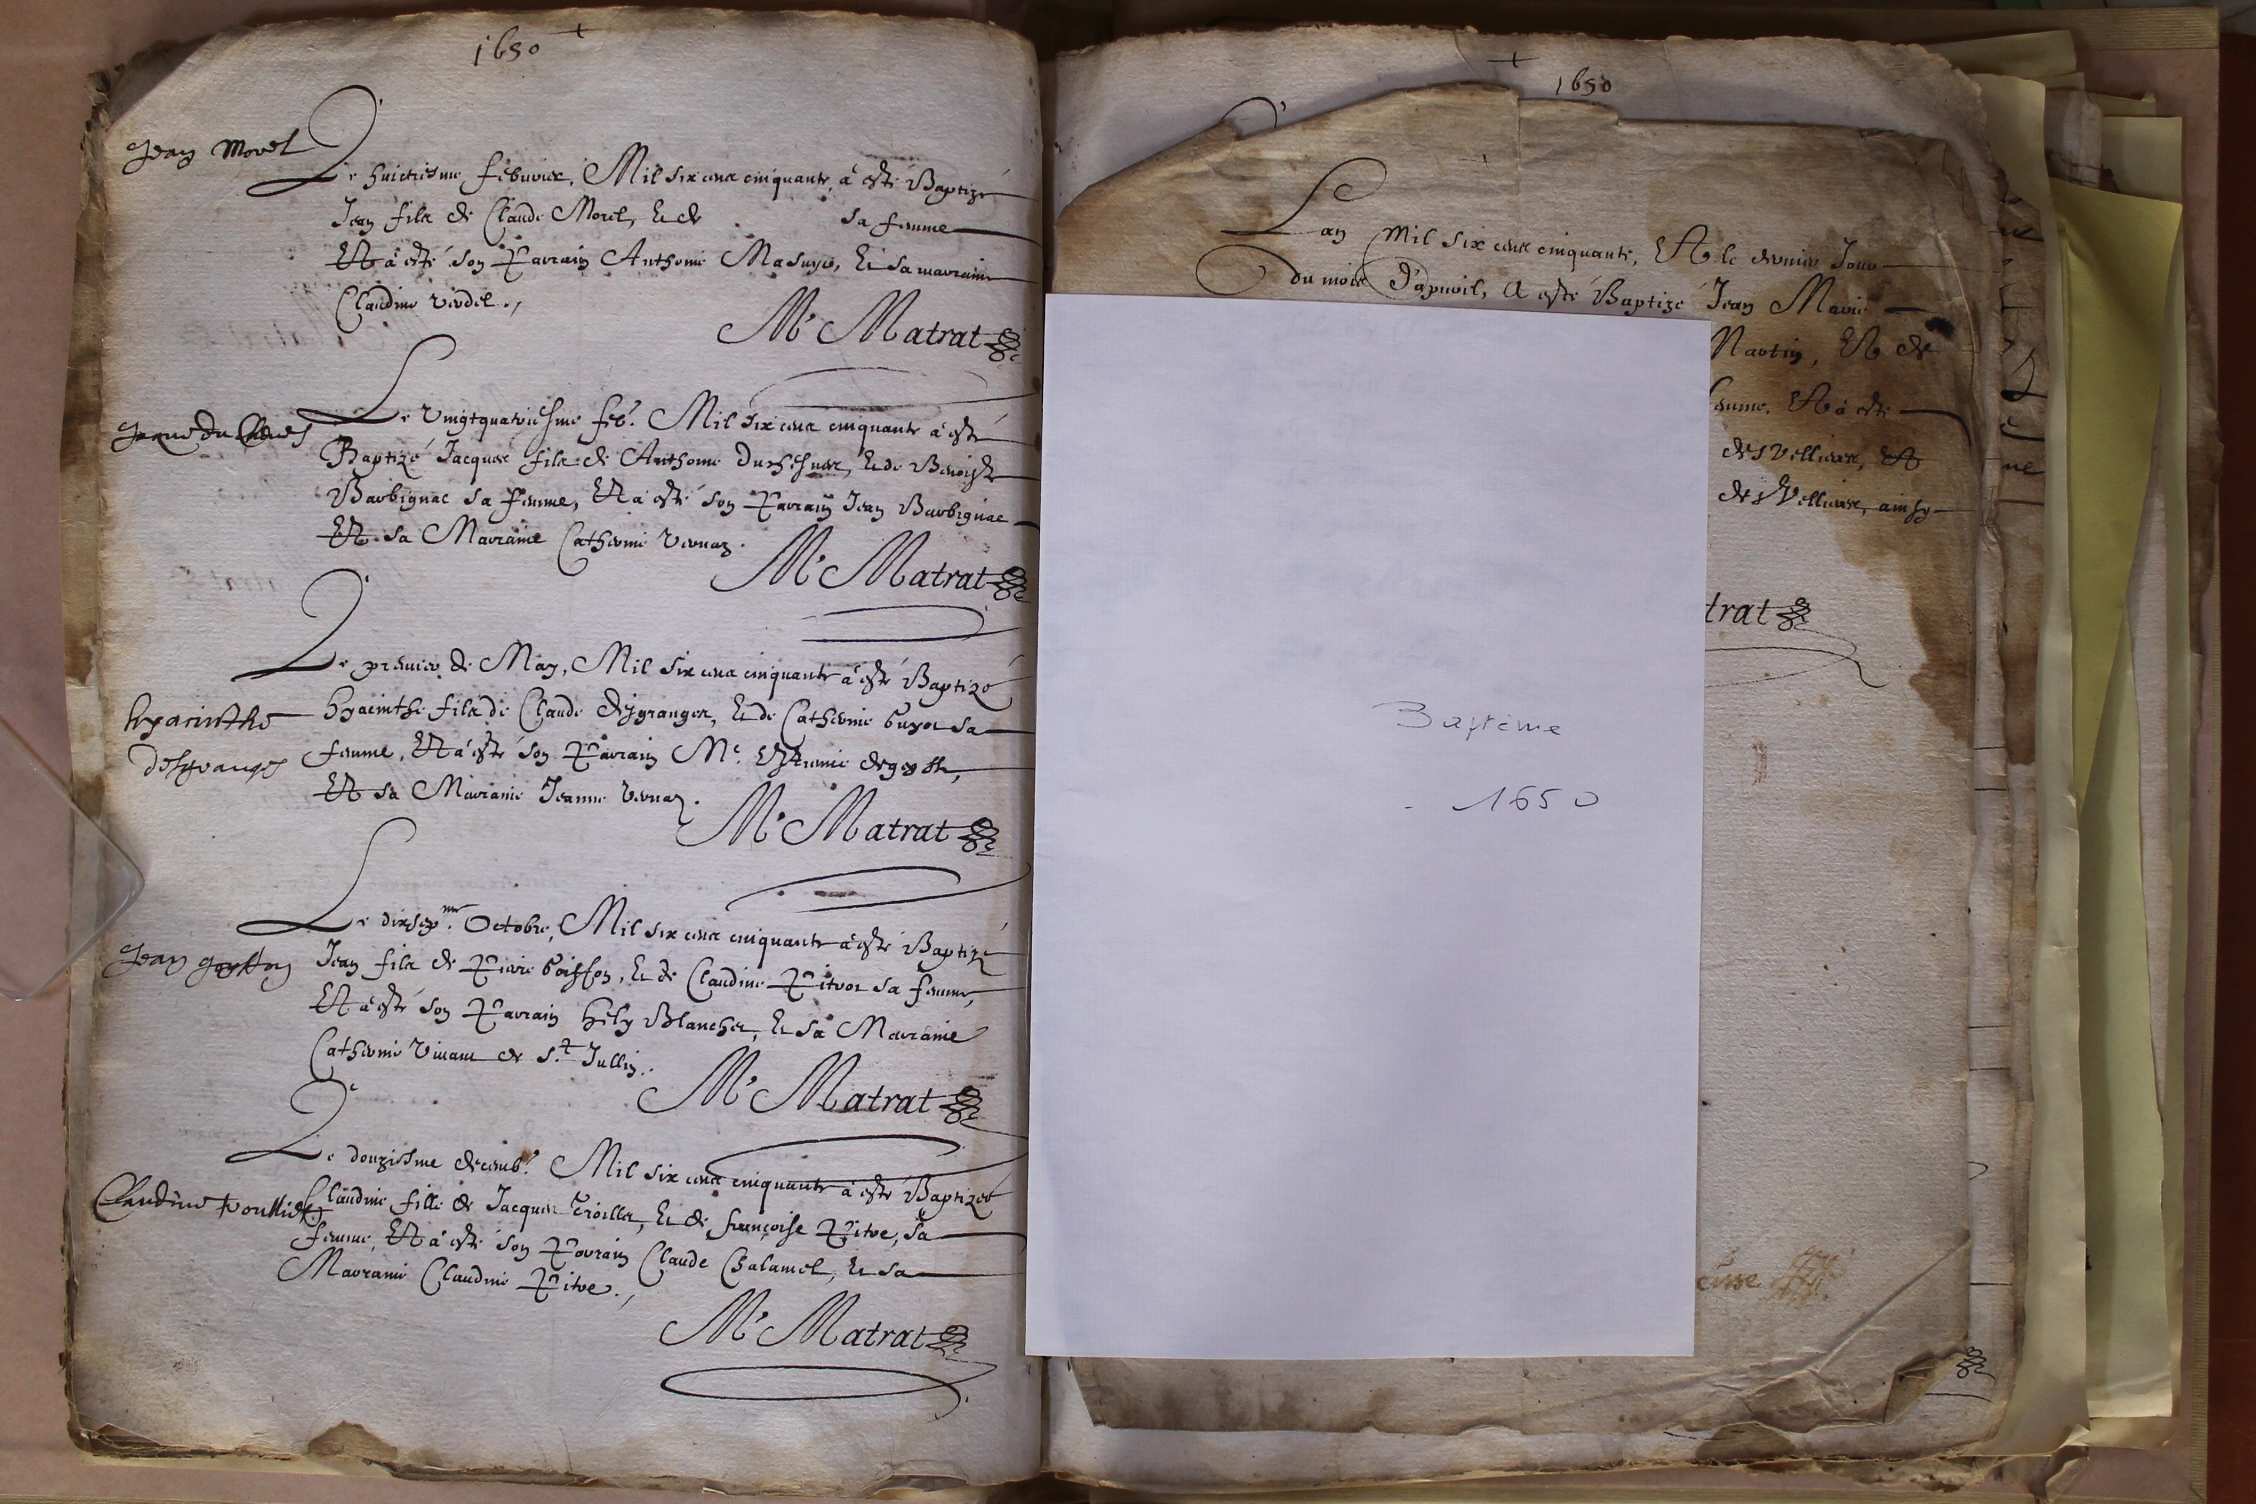 1650
Jean Morel
Le huictiesme febuvrier, Mil six cens cinquante, a esté Baptizé
Jean fils de Claude Morel, et de sa femme
Et a esté son Parrain Anthoine Masuyer, et sa marraine
Claudine Verdel.
Mre Matrat
Le vingtquatriesme feb. Mil six cens cinquante a esté
Baptizé Jacques fils de Anthoine Duchesnes, et de Benoiste
Barbignac sa femme, Et a esté son Parrain Jean Barbignac
Et sa Marraine Catherine Vernaz.
Mre Matrat
Le premier de May, Mil six cens cinquante a esté Baptizé
hyacinthe
Hyacinthe fils de Claude Desgranges, et de Catherine Guyot sa
desgranges
femme, Et a esté son Parrain Me.
Et sa Marraine Jeanne Vernaz.
Mre Matrat
Le dixsepme. Octobre, Mil six cens cinquante a esté Baptizé
Jean
Jean fils de Pierre Goisson, et de Claudine Pitrot sa femme,
Et a esté son Parrain Hely Blanchet, et sa Marraine
Catherine Vivant de St Jullin.
Mre Matrat
Le douziesme decemb. Mil six cens cinquante a esté Baptizée
Claudine
Claudine fille de Jacques Troillet, et de françoise Pitre, sa
femme, Et a esté son Parrain Claude Chalamel, et sa
Marraine Claudine Pitre.
Mre Matrat
1650
Lan Mil six cens cinquante, Et le dernier Jour
du mois d'apvril, A esté Baptizé Jean Marie
Martin, Et de
femme, Et a esté
des Vellieres, Et
des Vellieres, ainsy
trat
Baptême
- 1650